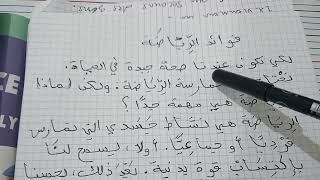 فوائد الرِّيَاضَة
لكي تكون عندنا صحة جيدة في الحياة.
نحتاج ممارسة الرِّيَاضة. ولكن لماذا
هي مهمة جدًّا؟
الرِّيَاضة هي نَشَاط جَسَدي التي يمارس
فرديًّا أو جماعيًّا. أولا، يسمح لنا
بإكتساب قوة بدنية. بَعْدَ ذلك،
CE
LY